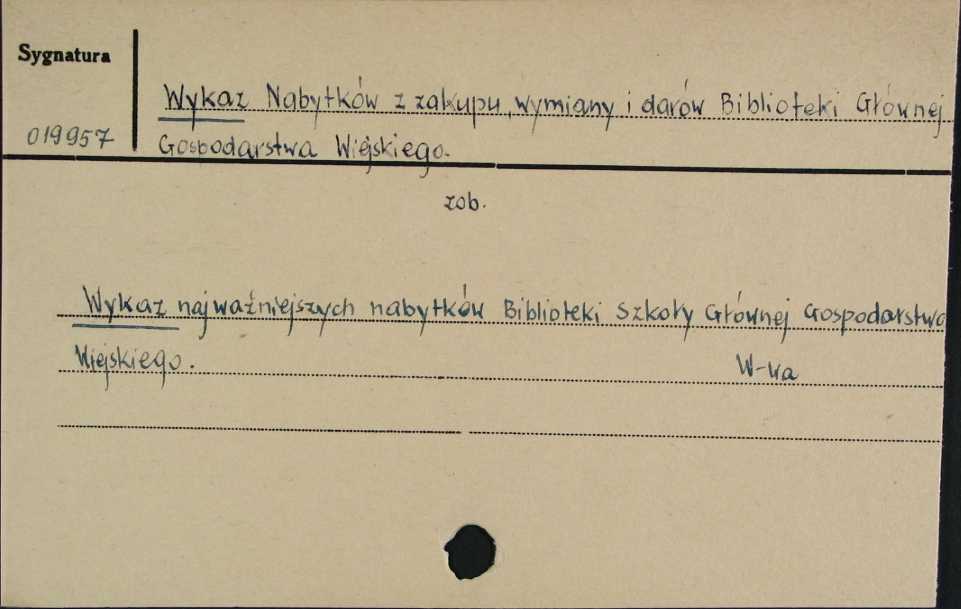 Sygnatura
Wykaz Nabytków z zakupu, wymiany i darów Biblioteki Głównej
019957
Gospodarstwa Wiejskiego.
zob.
Wykaz najważniejszych nabytków Biblioteki Szkoły Głównej Gospodarstwa
Wiejskiego. W-wa